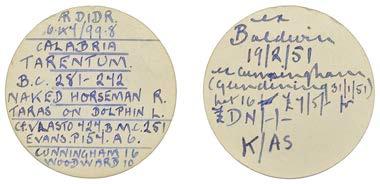 R.D,DR.
6.K4/99.8
CALABRIA
TARENTUM.
B.C. 281-242
NAKED HORSEMAN R.
TARAS ON DOLPHIN L.
CF. VLASTO 424, B.M.C. 251
EVANS. P154. A 6.
CUNNINGHAM 16
WOODWARD 10
ex
Baldwin
19/2/51
ex Cunningham
(Glendining 31/1/51)
lot 16
£DN/-/-
K/AS